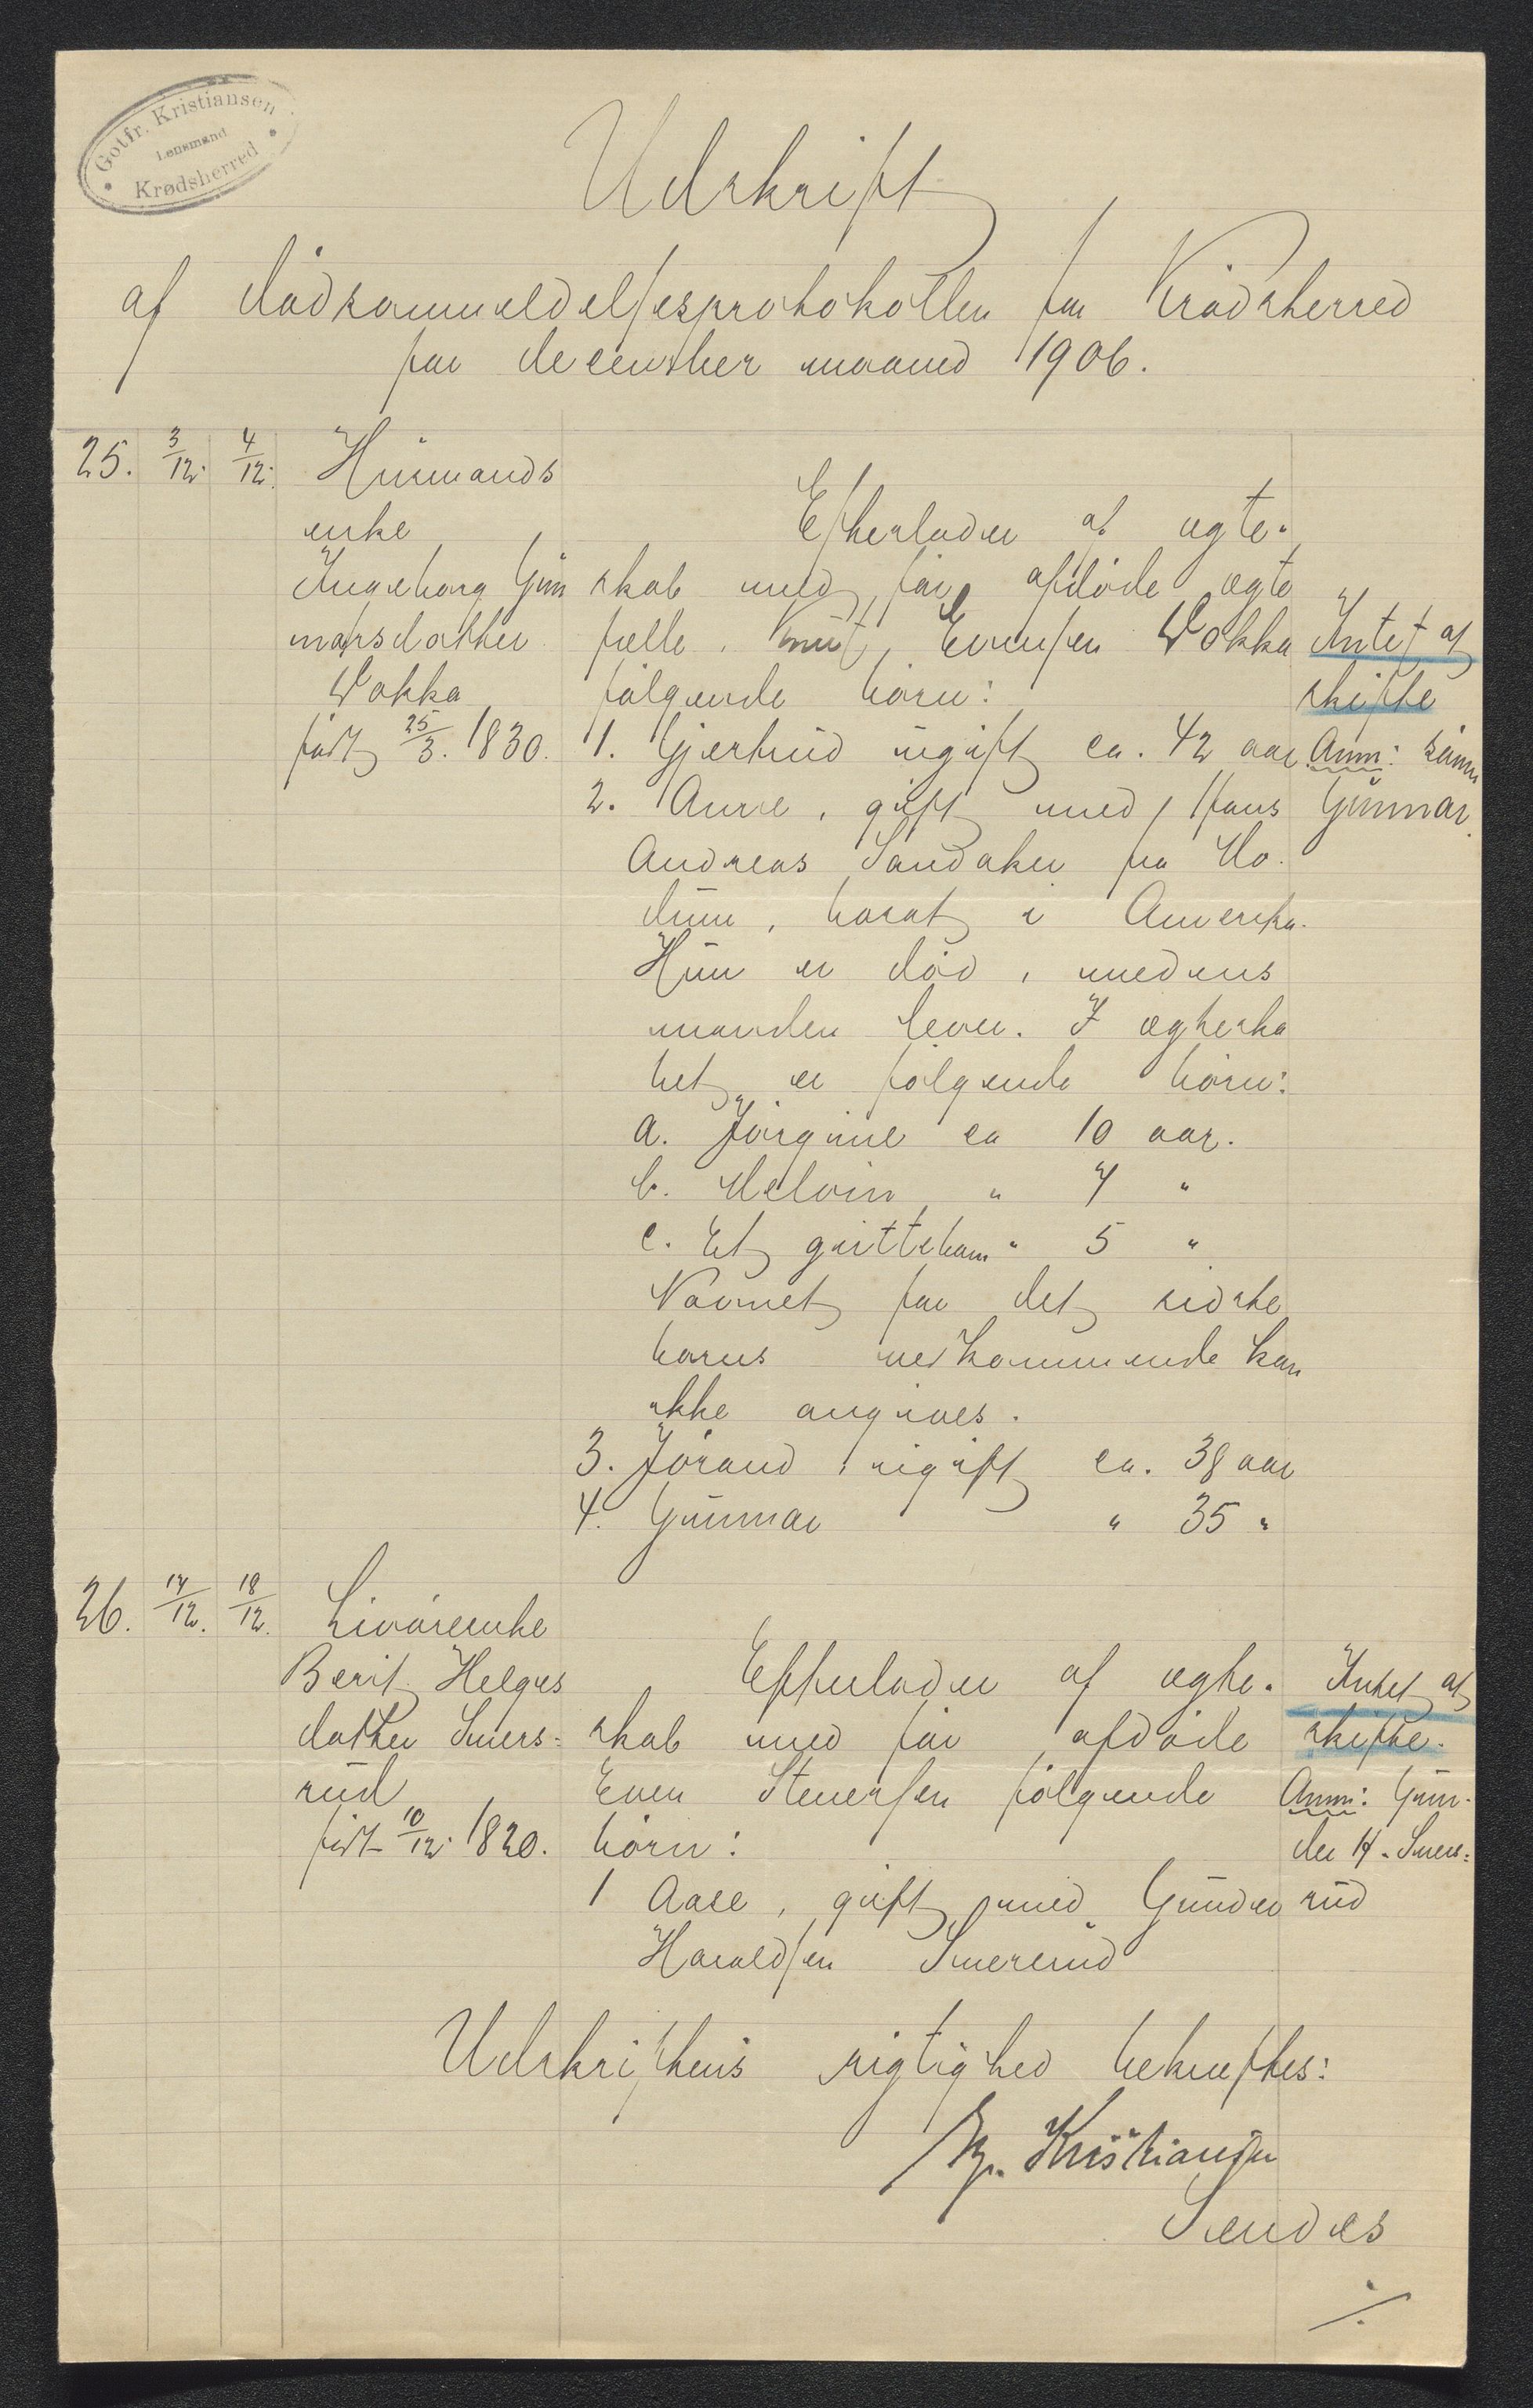 Gotfr. Kristiansen
Lensmand
Krødsherred
Udskrift
af dødsanmeldelsesprotokollen for Krødsherred
for december maaned 1906.
25. 3/12. 4/12. Husmands
enke
Ingeborg Gun
marsdatter
Vokka
født 25/3. 1830.
Efterlader af ægte-
skab med før afdøde ægte
fælle, Knut Evensen Vokka
følgende børn:
1. Gjertrud ugift ca. 42 aar
2. Anne, gift med Hans
Andreas Sandaker fra Mo-
dum, bosat i Amerika.
Hun er død, medens
manden lever. I ægteska
bet er følgende børn:
a. Jørgine ca 10 aar.
b. Melvin " 7 "
c. Et guttebarn " 5 "
Navnet for det sidste
barns vedkommende kan
ikke angives.
3. Jørand, ugift ca. 38 aar
4. Gunmar " 35 "
Intet at
skifte
Anm: sønn
Gunmar.
26. 14/12. 18/12. Livøreenke
Berit Helges
datter Smers=
rud
født 10/12. 1820.
Efterlader af ægte-
skab med før afdøde
Even Steversen følgende
børn:
1 Aase, gift med Gunder
Haraldsen Smersrud
Intet at
skifte.
Anm: Gun-
der H. Smers=
rud
Udskriftens rigtighed bekræftes:
Kristiansen
Sendes
./.